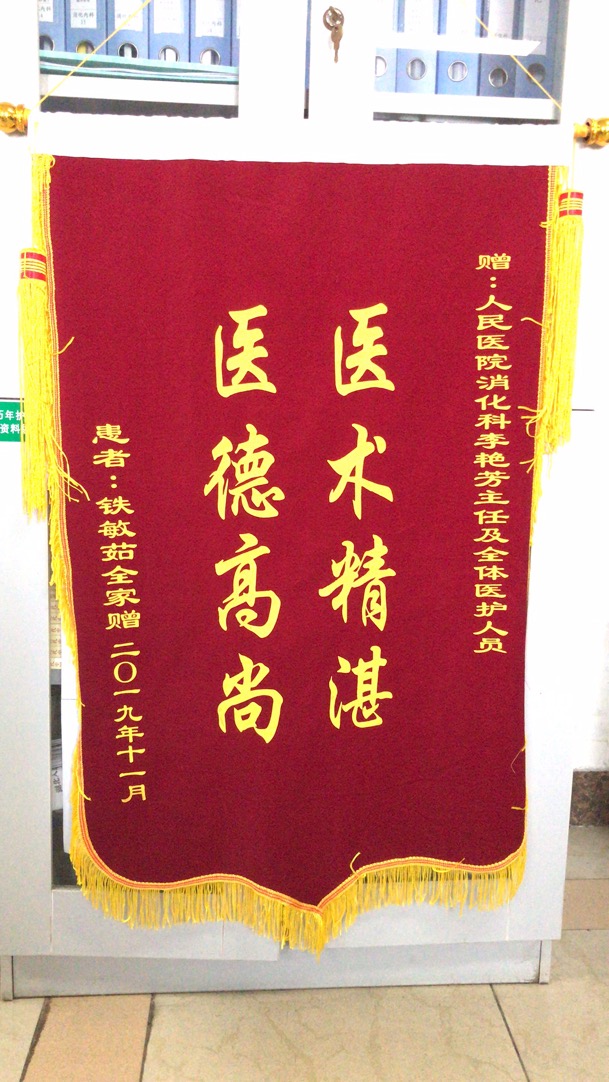 赠：人民医院消化科李艳芳主任及全体医护人员
医术精湛
医德高尚
患者：铁敏茹全家赠 二〇一九年十一月